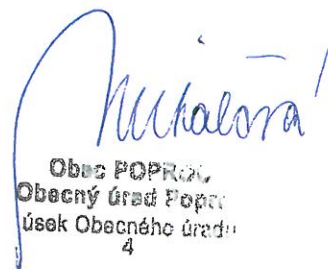 Mihalová
Obec POPROČ
Obecný úrad Popro
úsek Obecného úradu
4